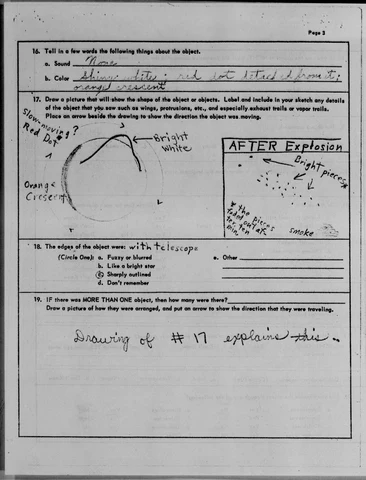 Page 3
16. Tell in a few words the following things about the object.
a. Sound None
b. Color Shiny white; red dot detached from it;
orange crescent
17. Draw a picture that will show the shape of the object or objects. Label and include in your sketch any details
of the object that you saw such as wings, protrusions, etc., and especially exhaust trails or vapor trails.
Place an arrow beside the drawing to show the direction the object was moving.
Slow-moving?
Red Dot
Bright
White
Orange
Crescent
AFTER Explosion
Bright pieces*
* the pieces
fade out
ten
smoke
18. The edges of the object were: with telescope
(Circle One): a. Fuzzy or blurred
b. Like a bright star
c. Sharply outlined
d. Don't remember
e. Other
19. IF there was MORE THAN ONE object, then how many were there?
Draw a picture of how they were arranged, and put an arrow to show the direction that they were traveling.
Drawing of #17 explains this.